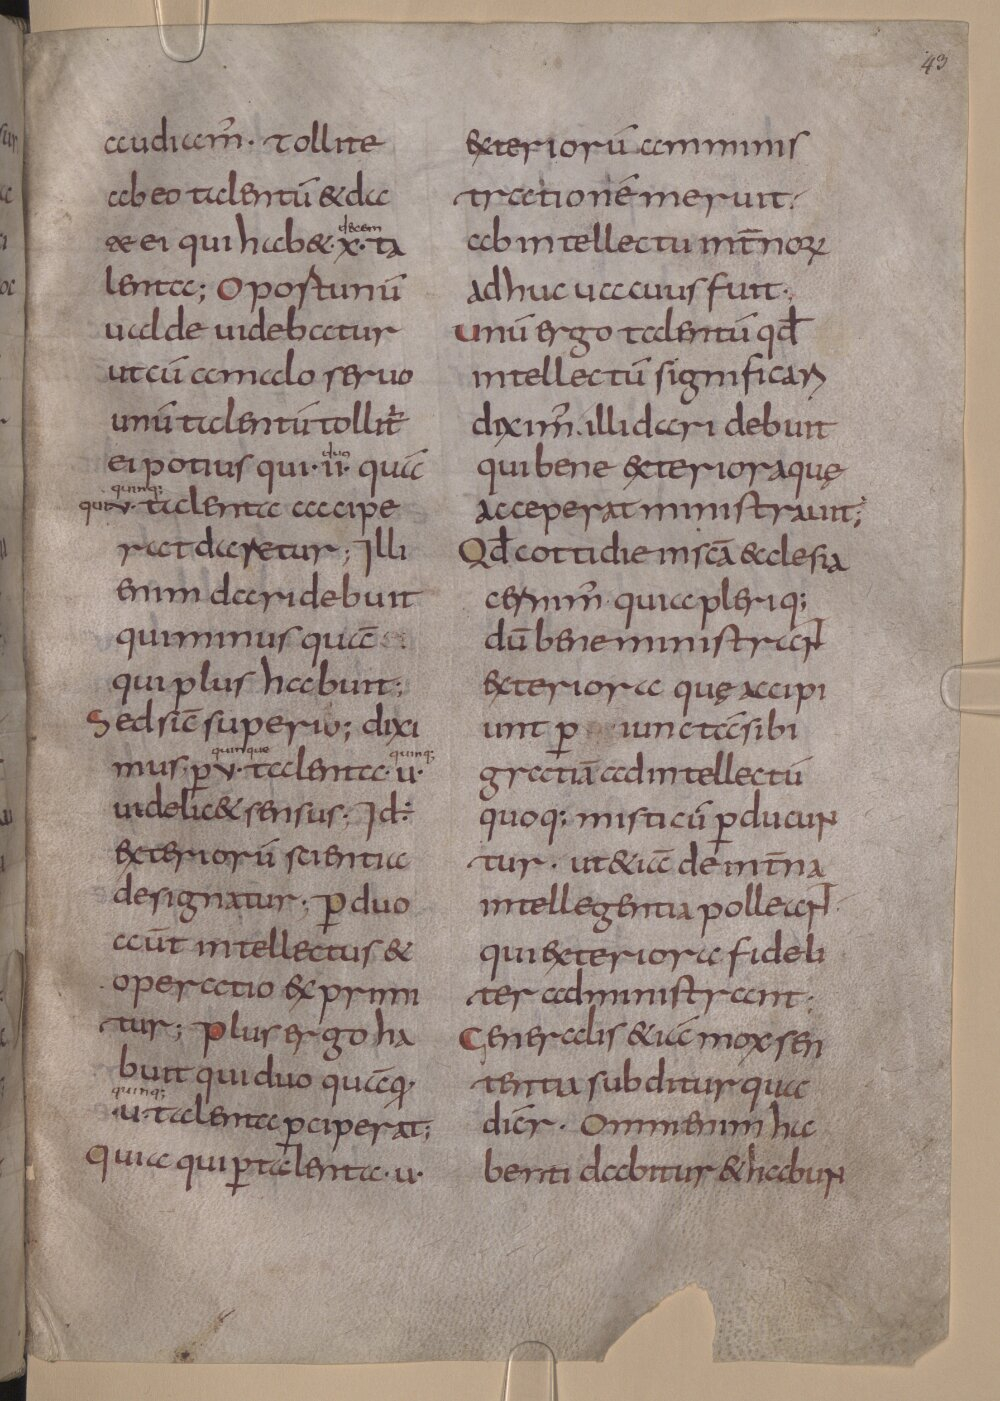 43
audiam̄. Tollite
ab eo talentū & da
te ei qui hab&·x·ta
decem
lenta; Oportunū
ualde uidebatur
ut cū a malo seruo
unū talentū tollit̄
ei potius qui·ii· quā
duo
qui·v·talenta accipe
quinq;
rat daretur; Illi
enim dari debuit
qui minus quā
qui plus habuit;
Sed sic̄ superi; dixi
mus, p̄·v·talenta·u·
quinque quinq;
uidelic& sensus; Id:
exteriorū scientia
designatur; P̄ duo
aūt intellectus &
operatio exprimi
tur; Plus ergo ha
buit qui duo quāq,
·u·talenta p̄ciperat;
quinq;
Quia qui p̄ talenta·u·
exteriorū amminis
trationē meruit;
ab intellectu int̄noꝝ
adhuc uacuus fuit;
Unū ergo talentū qd̄
intellectū significare
dixim̄. illi dari debuit
qui bene exteriora quę
acceperat ministrauit;
Qd̄ cottidie in sc̄a ecclesia
cernim̄ quia pleriq;
dū bene ministrant
exteriora quę accipi
unt p̄ iunctā sibi
gratiā ad intellectū
quoq; misticū p̄ducun
tur. ut &iā de int̄na
intellegentia polleant
qui exteriora fideli
ter administrant;
Generalis &iā mox sen
tentia subditur qua
dic̄r. Omni enim ha
benti dabitur & habun